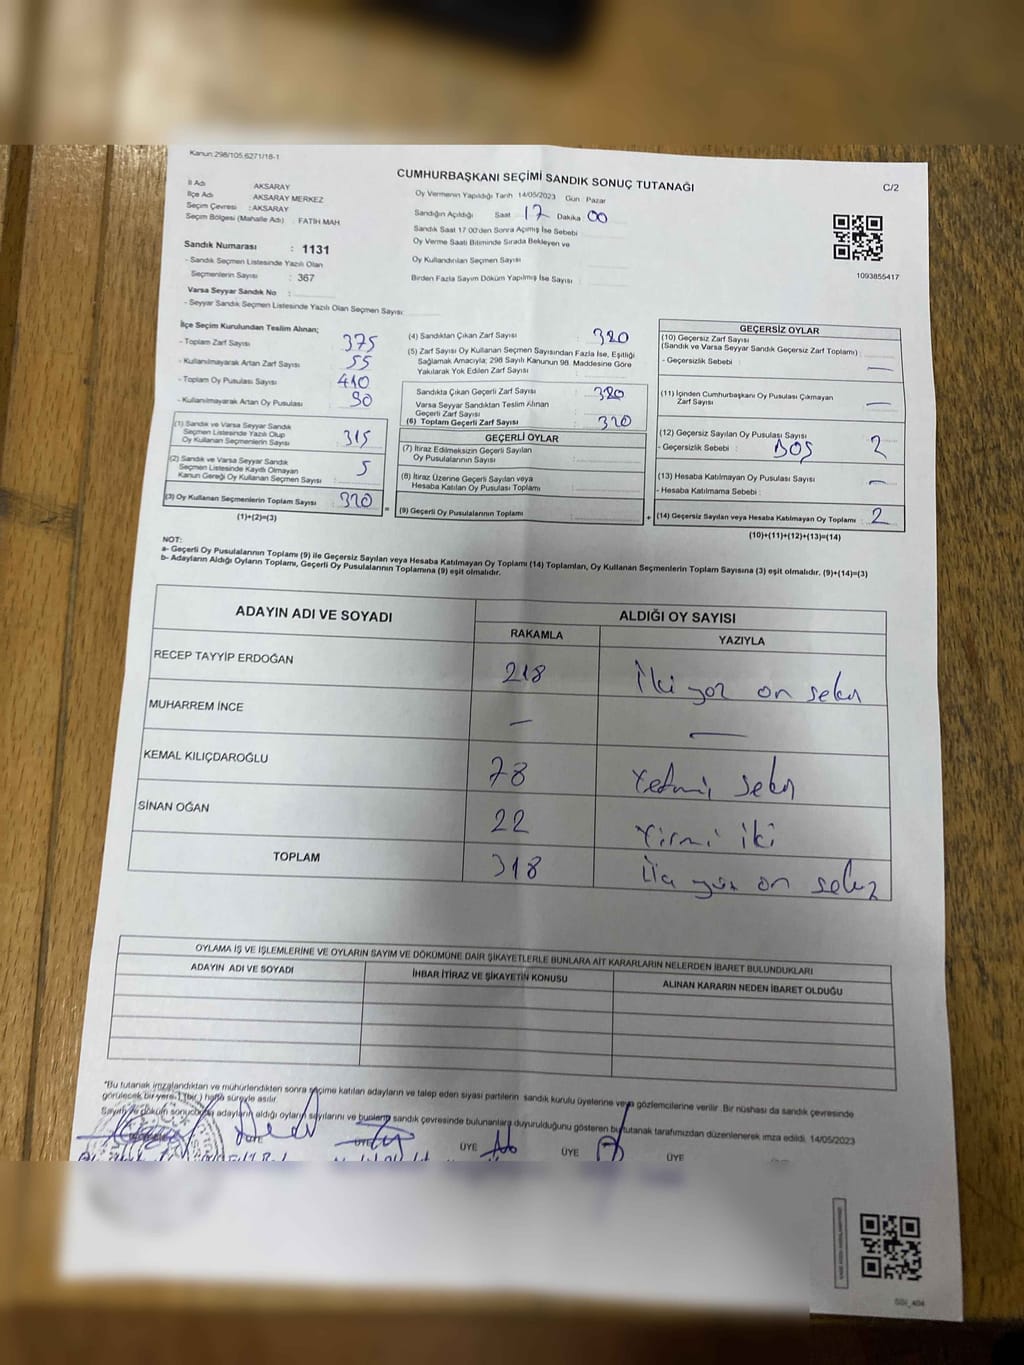 Kanun:298/105,6271/18-1
CUMHURBAŞKANI SEÇİMİ SANDIK SONUÇ TUTANAĞI
C/2
İl Adı : AKSARAY
İlçe Adı : AKSARAY MERKEZ
Seçim Çevresi : AKSARAY
Seçim Bölgesi (Mahalle Adı) : FATİH MAH.
Oy Vermenin Yapıldığı Tarih 14/05/2023 Gün : Pazar
Sandığın Açıldığı Saat 17 Dakika 00
Sandık Saat 17.00'den Sonra Açılmış İse Sebebi
Oy Verme Saati Bitiminde Sırada Bekleyen ve
Oy Kullandırılan Seçmen Sayısı
Birden Fazla Sayım Döküm Yapılmış İse Sayısı :
1093855417
Sandık Numarası : 1131
- Sandık Seçmen Listesinde Yazılı Olan
Seçmenlerin Sayısı : 367
Varsa Seyyar Sandık No :
- Seyyar Sandık Seçmen Listesinde Yazılı Olan Seçmen Sayısı:
İlçe Seçim Kurulundan Teslim Alınan;
- Toplam Zarf Sayısı : 375
- Kullanılmayarak Artan Zarf Sayısı : 55
- Toplam Oy Pusulası Sayısı : 410
- Kullanılmayarak Artan Oy Pusulası : 90
(1) Sandık ve Varsa Seyyar Sandık
Seçmen Listesinde Yazılı Olup
Oy Kullanan Seçmenlerin Sayısı : 315
(2) Sandık ve Varsa Seyyar Sandık
Seçmen Listesinde Kaydı Olmayan
Kanun Gereği Oy Kullanan Seçmen Sayısı : 5
(3) Oy Kullanan Seçmenlerin Toplam Sayısı : 320
(1)+(2)=(3)
=
(4) Sandıktan Çıkan Zarf Sayısı : 320
(5) Zarf Sayısı Oy Kullanan Seçmen Sayısından Fazla İse, Eşitliği
Sağlamak Amacıyla; 298 Sayılı Kanunun 98. Maddesine Göre
Yakılarak Yok Edilen Zarf Sayısı :
Sandıkta Çıkan Geçerli Zarf Sayısı : 320
Varsa Seyyar Sandıktan Teslim Alınan
Geçerli Zarf Sayısı :
(6) Toplam Geçerli Zarf Sayısı : 320
GEÇERLİ OYLAR
(7) İtiraz Edilmeksizin Geçerli Sayılan
Oy Pusulalarının Sayısı :
(8) İtiraz Üzerine Geçerli Sayılan veya
Hesaba Katılan Oy Pusulası Toplamı :
(9) Geçerli Oy Pusulalarının Toplamı :
+
GEÇERSİZ OYLAR
(10) Geçersiz Zarf Sayısı
(Sandık ve Varsa Seyyar Sandık Geçersiz Zarf Toplamı) :
- Geçersizlik Sebebi : —
(11) İçinden Cumhurbaşkanı Oy Pusulası Çıkmayan
Zarf Sayısı : —
(12) Geçersiz Sayılan Oy Pusulası Sayısı
- Geçersizlik Sebebi : BOŞ 2
(13) Hesaba Katılmayan Oy Pusulası Sayısı : —
- Hesaba Katılmama Sebebi :
(14) Geçersiz Sayılan veya Hesaba Katılmayan Oy Toplamı : 2
(10)+(11)+(12)+(13)=(14)
NOT:
a- Geçerli Oy Pusulalarının Toplamı (9) ile Geçersiz Sayılan veya Hesaba Katılmayan Oy Toplamı (14) Toplamları, Oy Kullanan Seçmenlerin Toplam Sayısına (3) eşit olmalıdır. (9)+(14)=(3)
b- Adayların Aldığı Oyların Toplamı, Geçerli Oy Pusulalarının Toplamına (9) eşit olmalıdır.
ADAYIN ADI VE SOYADI ALDIĞI OY SAYISI
RAKAMLA YAZIYLA
RECEP TAYYİP ERDOĞAN 218 İki yüz on sekiz
MUHARREM İNCE — —
KEMAL KILIÇDAROĞLU 78 Yetmiş sekiz
SİNAN OĞAN 22 Yirmi iki
TOPLAM 318 Üç yüz on sekiz
OYLAMA İŞ VE İŞLEMLERİNE VE OYLARIN SAYIM VE DÖKÜMÜNE DAİR ŞİKAYETLERLE BUNLARA AİT KARARLARIN NELERDEN İBARET BULUNDUKLARI
ADAYIN ADI VE SOYADI İHBAR İTİRAZ VE ŞİKAYETİN KONUSU ALINAN KARARIN NEDEN İBARET OLDUĞU
*Bu tutanak imzalandıktan ve mühürlendikten sonra seçime katılan adayların ve talep eden siyasi partilerin sandık kurulu üyelerine veya gözlemcilerine verilir. Bir nüshası da sandık çevresinde
görülecek bir yere 1 (bir ) hafta süreyle asılır.
Sayım ve döküm sonucunda adayların aldığı oyların sayılarını ve bunların sandık çevresinde bulunanlara duyurulduğunu gösteren bu tutanak tarafımızdan düzenlenerek imza edildi. 14/05/2023
ÜYE ÜYE ÜYE ÜYE ÜYE